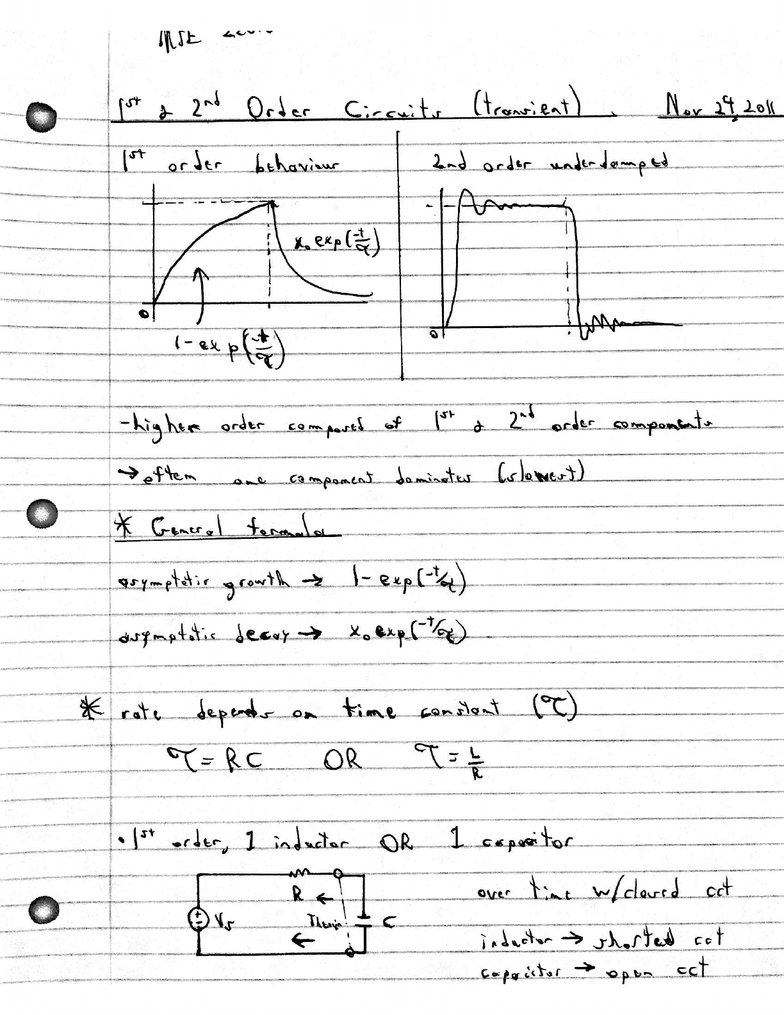 MSE
1st & 2nd Order Circuits (transient). Nov 29, 2011
1st order behaviour
2nd order underdamped
x₀ exp(-t/τ)
0
1-exp(-t/τ)
0
-higher order composed of 1st & 2nd order components
→ often one component dominates (slowest)
* General formula
asymptotic growth → 1-exp(-t/τ)
asymptotic decay → x₀ exp(-t/τ)
* rate depends on time constant (τ)
τ = RC OR τ = L/R
• 1st order, 1 inductor OR 1 capacitor
R ←
over time w/closed cct
Vs Thevin C
←
inductor → shorted cct
capacitor → open cct